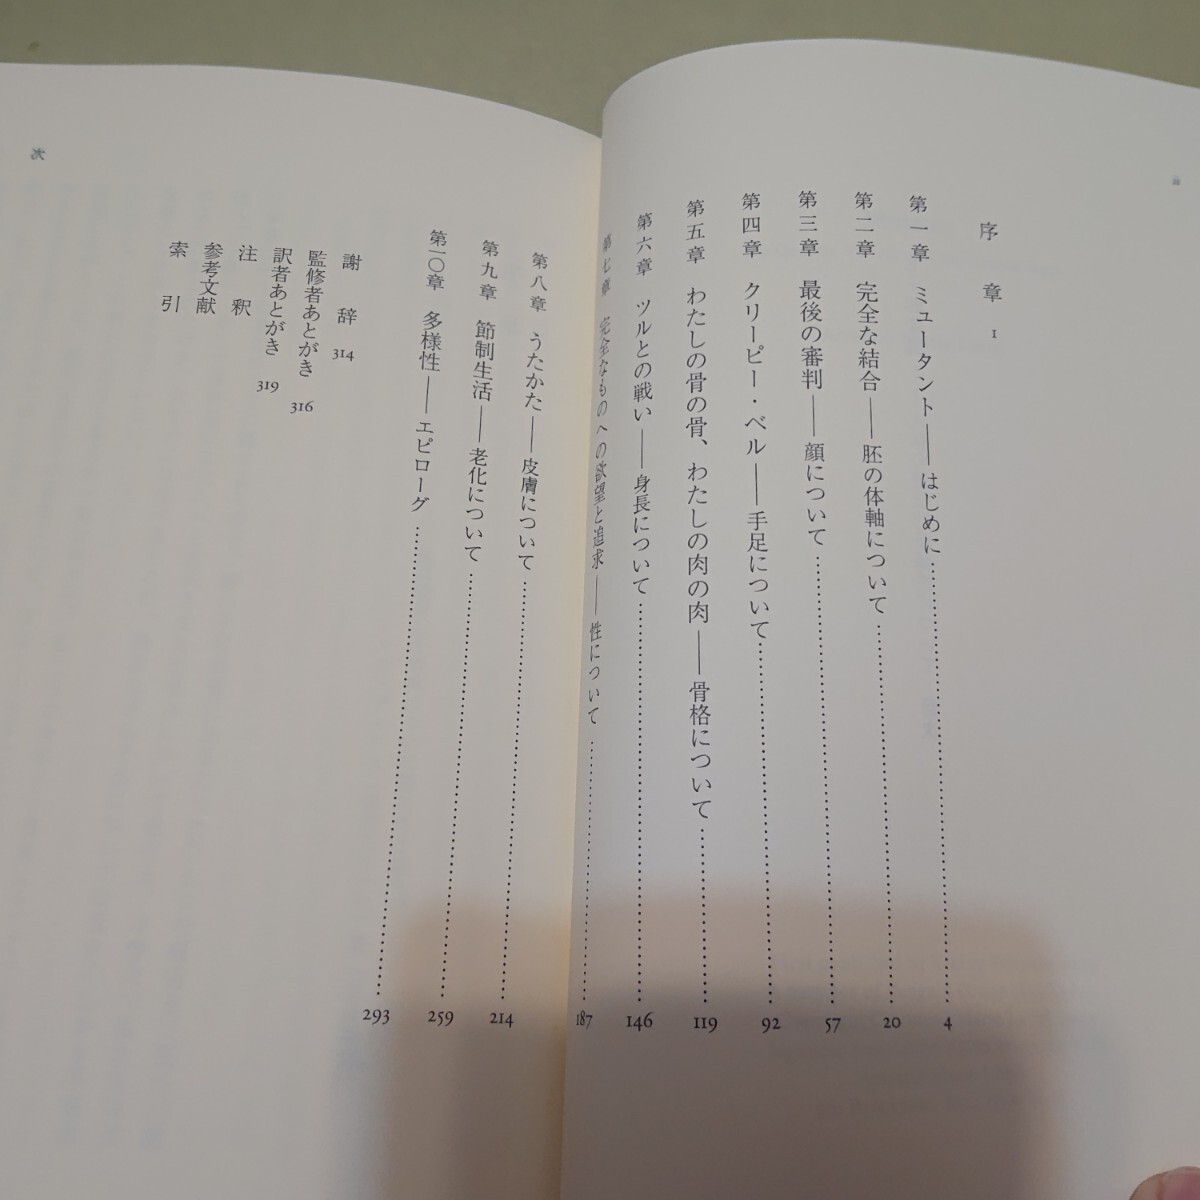 序章 1
第一章 ミュータント——はじめに 4
第二章 完全な結合——胚の体軸について 20
第三章 最後の審判——顔について 57
第四章 クリーピー・ベル——手足について 92
第五章 わたしの骨の骨、わたしの肉の肉——骨格について 119
第六章 ツルとの戦い——身長について 146
第七章 完全なものへの欲望と追求——性について 187
第八章 うたかた——皮膚について 214
第九章 節制生活——老化について 259
第一〇章 多様性——エピローグ 293
謝辞 314
監修者あとがき 316
訳者あとがき 319
注釈
参考文献
索引
次